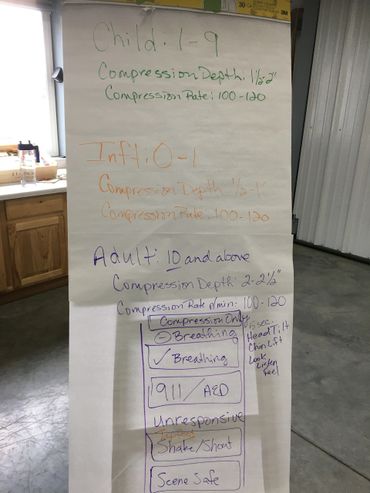 Child: 1-9
Compression Depth: 1½-2"
Compression Rate: 100-120
Inft: 0-1
Compression Depth ½-1"
Compression Rate: 100-120
Adult: 10 and above
Compression Depth: 2-2½"
Compression Rate p/min: 100-120
Compression Only
- Breathing
✓ Breathing
911/AED
Unresponsive
Shake/Shout
Scene Safe
Head Tilt
Chin Lift
Look
Listen
Feel